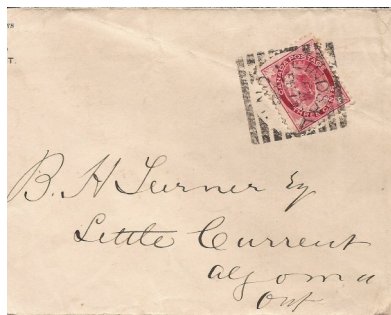 T.
B. H Turner Esq
Little Current
Algoma
Ont